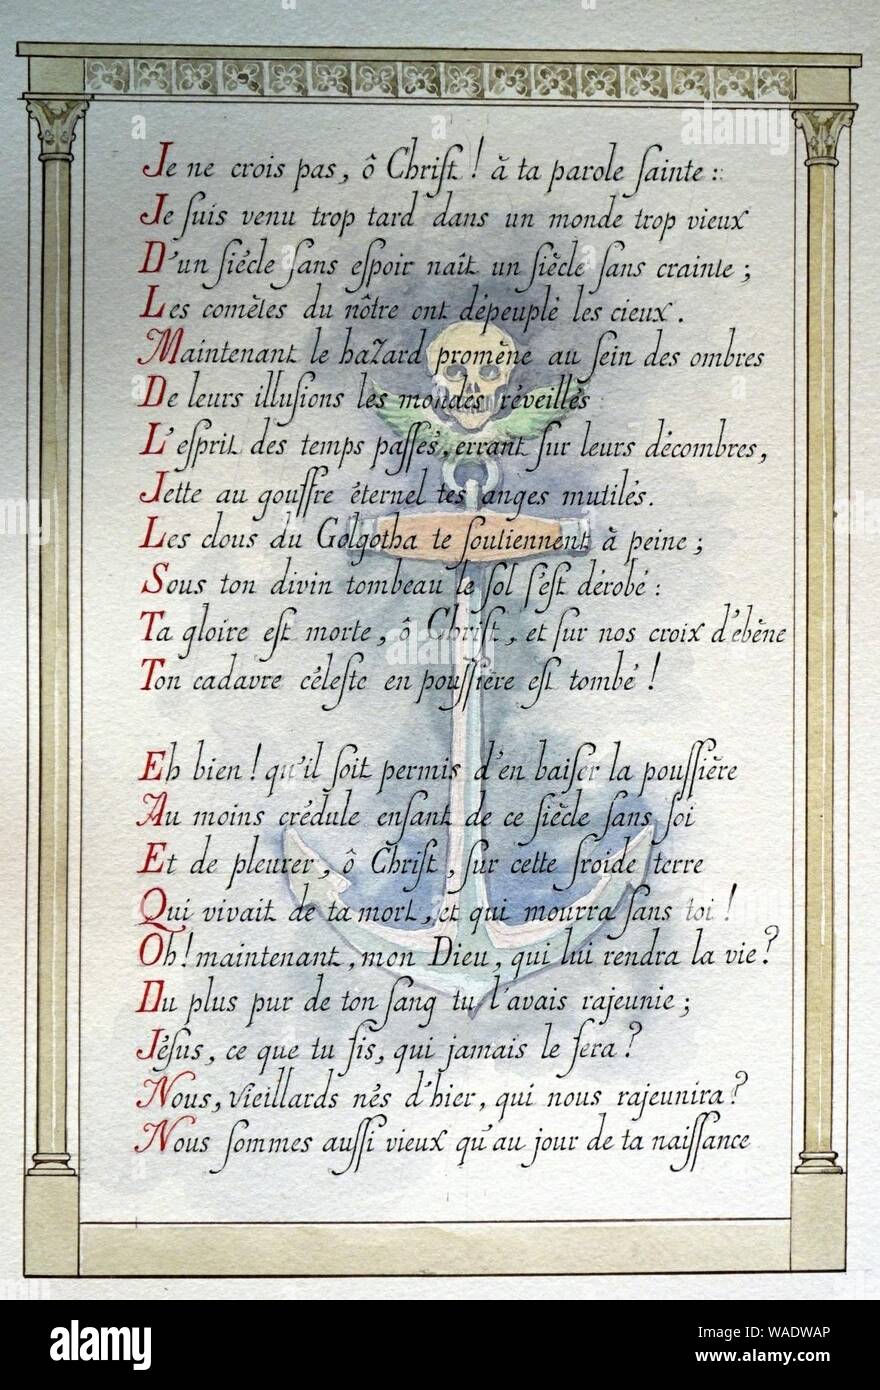 Je ne crois pas, ô Chriſt ! à ta parole ſainte :
Je ſuis venu trop tard dans un monde trop vieux
D'un ſiècle ſans eſpoir naît un ſiècle ſans crainte ;
Les comètes du nôtre ont dépeuplé les cieux.
Maintenant le hazard promène au ſein des ombres
De leurs illuſions les mondes réveillés
L'eſprit des temps paſſés, errant ſur leurs décombres,
Jette au gouffre éternel tes anges mutilés.
Les clous du Golgotha te ſoutiennent à peine ;
Sous ton divin tombeau le ſol ſ'eſt dérobé :
Ta gloire eſt morte, ô Chriſt, et ſur nos croix d'ébène
Ton cadavre céleſte en pouſſière eſt tombé !
Eh bien ! qu'il ſoit permis d'en baiſer la pouſſière
Au moins crédule enfant de ce ſiècle ſans foi
Et de pleurer, ô Chriſt, ſur cette froide terre
Qui vivait de ta mort, et qui mourra ſans toi !
Oh! maintenant, mon Dieu, qui lui rendra la vie ?
Du plus pur de ton ſang tu l'avais rajeunie ;
Jéſus, ce que tu fis, qui jamais le fera ?
Nous, vieillards nés d'hier, qui nous rajeunira ?
Nous ſommes auſſi vieux qu'au jour de ta naiſſance
alamy
Image ID: WADWAP
www.alamy.com